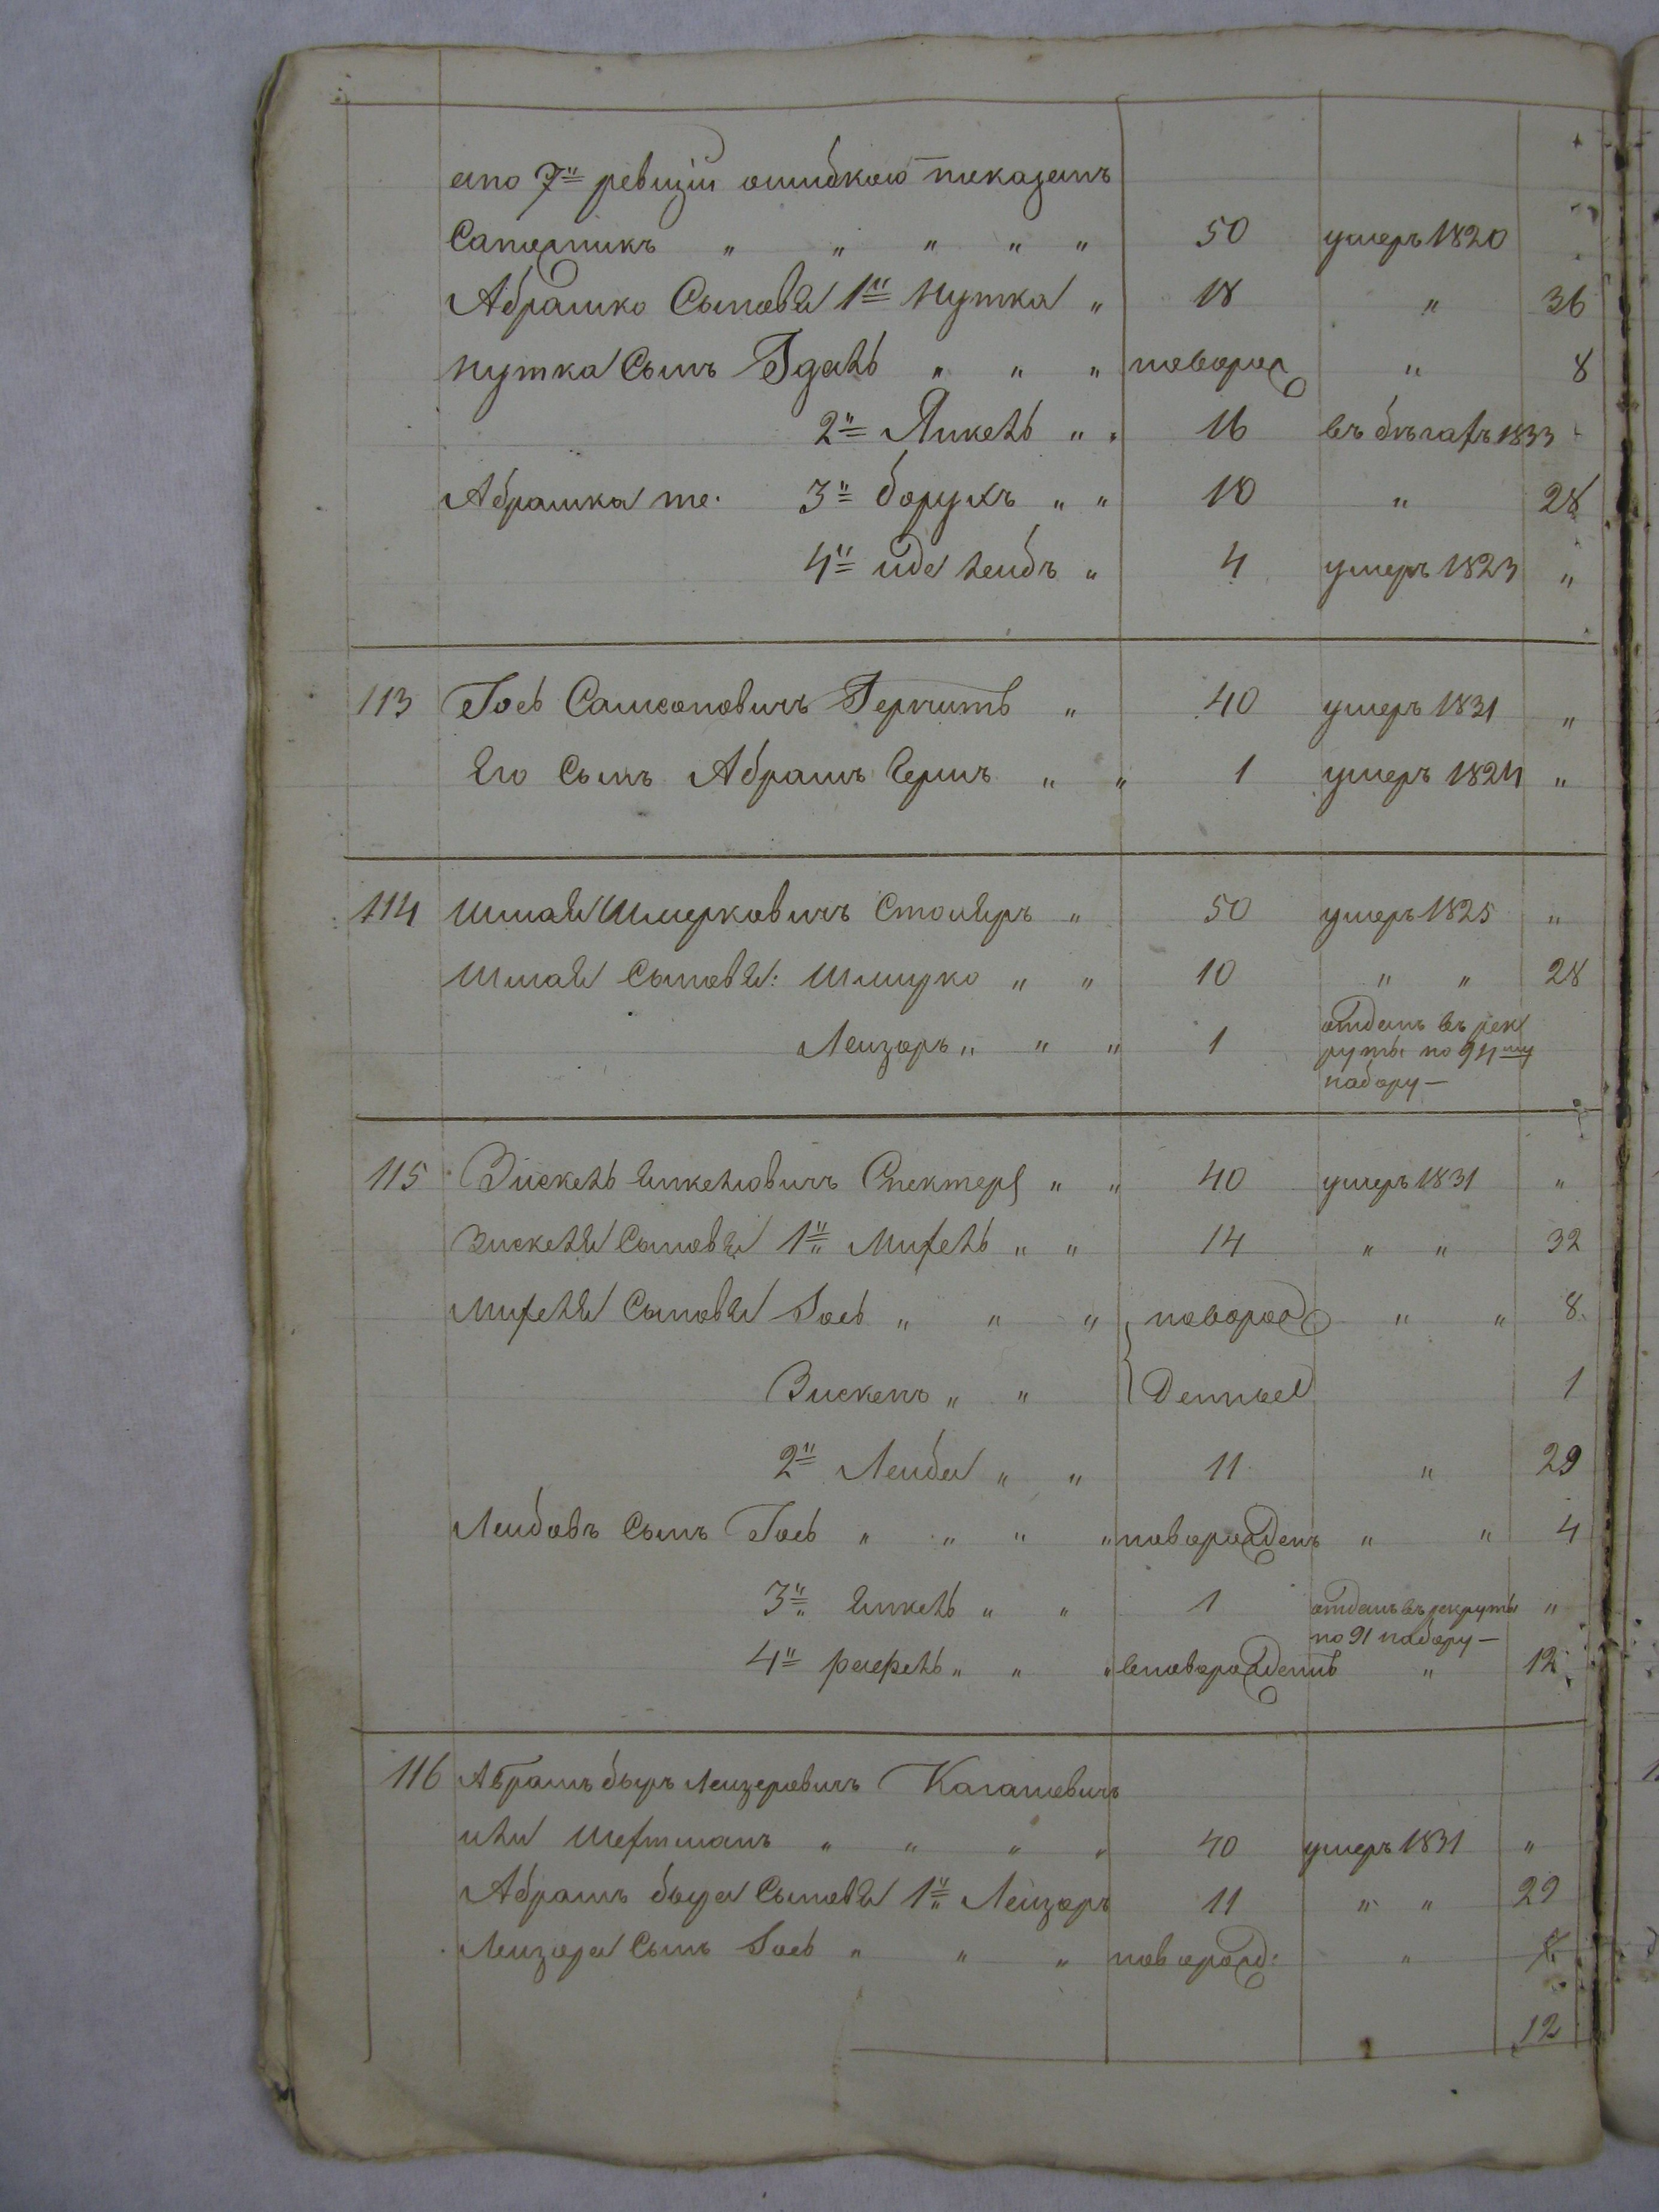 апо 7й ревизіи ошибкою показанъ
Сапожникъ " " " " " 50 умеръ 1820
Абрашко Сыновья 1й Нутка " 18 " 36
Нутка Сынъ Гдаль " " " новорож " 8
2й Янкель " " 16 въ бѣгахъ 1833
Абрашка те. 3й борухъ " " 10 " 28
4й иде лейбъ " 4 умеръ 1823 "
113 Іось Самсоновичъ " 40 умеръ 1831 "
Его Сынъ Абрамъ Гершъ " " 1 умеръ 1824 "
114 Шмая Шмерковичъ Столяръ " 50 умеръ 1825 "
Шмая Сыновья: " " 10 " " 28
Лейзоръ " " " 1 отданъ въ рек
руты по 94му
набору —
115 Зискель Янкелювичъ Спектеръ " " 40 умеръ 1831 "
Зискеля Сыновья 1й Михель " " 14 " " 32
Михеля Сыновья Іось " " " новорож " " 8
Зискень " " денные 1
2й Лейба " " 11 " 29
Лейбовъ Сынъ Іось " " " " новорожденъ " " 4
3й Янкель " " 1 отданъ въ рекруты "
по 91 набору —
4й рафель " " " новорожденъ " 12
116 Абрамъ беръ Лейзеровичъ Кагановичъ
или Шехтманъ " " " " 40 умеръ 1831 "
Абрамъ бера Сыновья 1й Лейзоръ 11 " " 29
Лейзора Сынъ Іось " " " новорожд: "
12